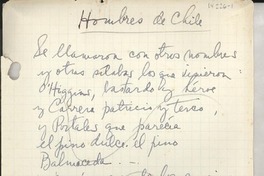 Hombres de Chile
Se llamaron con otros nombres
y otras sílabas los que vinieron:
O'Higgins, bastardo y héroe
y Carrera patricio y terco,
y Portales que parecía
el pino dulce. el pino
Balmaceda ...